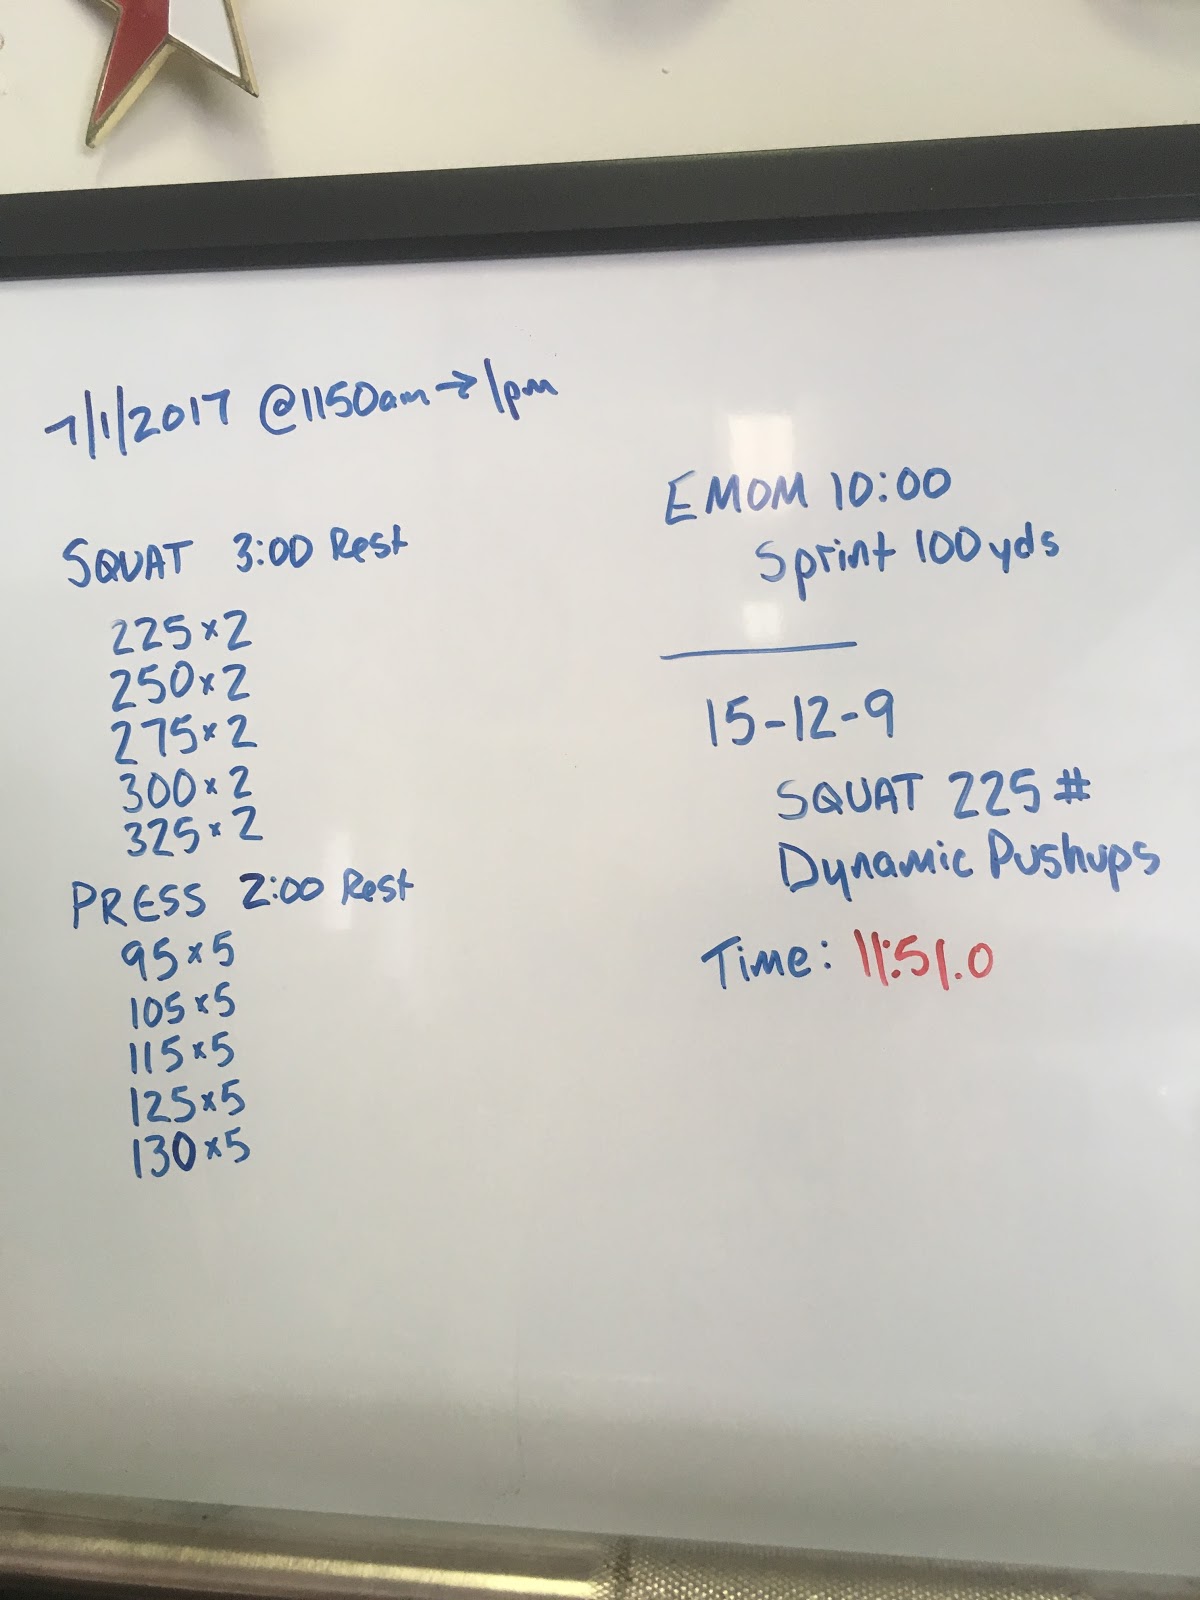 7/1/2017 @1150am → 1pm
SQUAT 3:00 Rest
225 x 2
250 x 2
275 x 2
300 x 2
325 x 2
PRESS 2:00 Rest
95 x 5
105 x 5
115 x 5
125 x 5
130 x 5
EMOM 10:00
Sprint 100 yds
15-12-9
SQUAT 225 #
Dynamic Pushups
Time: 11:51.0